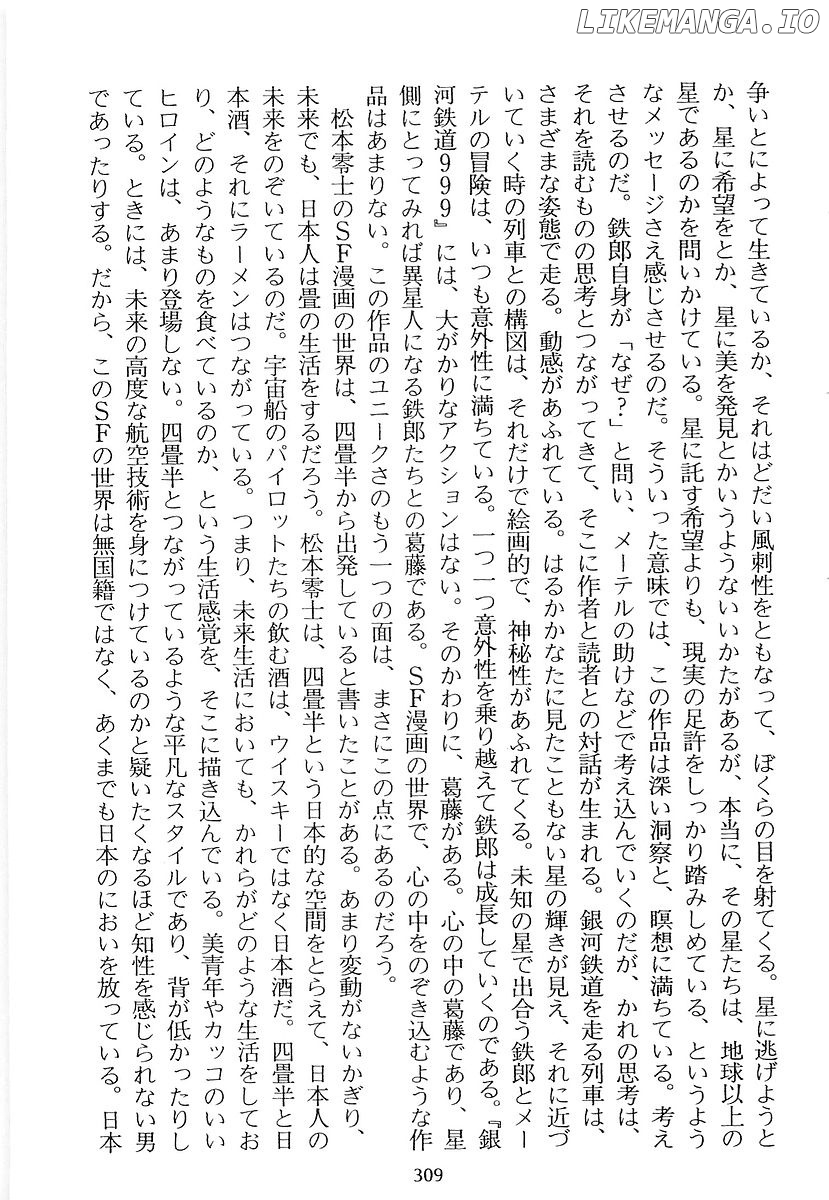 LIKEMANGA.IO
争いとによって生きているか、それはどだい風刺性をともなって、ぼくらの目を射てくる。星に逃げようと
か、星に希望をとか、星に美を発見とかいうようないいかたがあるが、本当に、その星たちは、地球以上の
星であるのかを問いかけている。星に託す希望よりも、現実の足許をしっかり踏みしめている、というよう
なメッセージさえ感じさせるのだ。そういった意味では、この作品は深い洞察と、瞑想に満ちている。考え
させるのだ。鉄郎自身が「なぜ?」と問い、メーテルの助けなどで考え込んでいくのだが、かれの思考は、
それを読むものの思考とつながってきて、そこに作者と読者との対話が生まれる。銀河鉄道を走る列車は、
さまざまな姿態で走る。動感があふれている。はるかかなたに見たこともない星の輝きが見え、それに近づ
いていく時の列車との構図は、それだけで絵画的で、神秘性があふれてくる。未知の星で出合う鉄郎とメー
テルの冒険は、いつも意外性に満ちている。一つ一つ意外性を乗り越えて鉄郎は成長していくのである。『銀
河鉄道999』には、大がかりなアクションはない。そのかわりに、葛藤がある。心の中の葛藤であり、星
側にとってみれば異星人になる鉄郎たちとの葛藤である。SF漫画の世界で、心の中をのぞき込むような作
品はあまりない。この作品のユニークさのもう一つの面は、まさにこの点にあるのだろう。
松本零士のSF漫画の世界は、四畳半から出発していると書いたことがある。あまり変動がないかぎり、
未来でも、日本人は畳の生活をするだろう。松本零士は、四畳半という日本的な空間をとらえて、日本人の
未来をのぞいているのだ。宇宙船のパイロットたちの飲む酒は、ウイスキーではなく日本酒だ。四畳半と日
本酒、それにラーメンはつながっている。つまり、未来生活においても、かれらがどのような生活をしてお
り、どのようなものを食べているのか、という生活感覚を、そこに描き込んでいる。美青年やカッコのいい
ヒロインは、あまり登場しない。四畳半とつながっているような平凡なスタイルであり、背が低かったりし
ている。ときには、未来の高度な航空技術を身につけているのかと疑いたくなるほど知性を感じられない男
であったりする。だから、このSFの世界は無国籍ではなく、あくまでも日本のにおいを放っている。日本
309